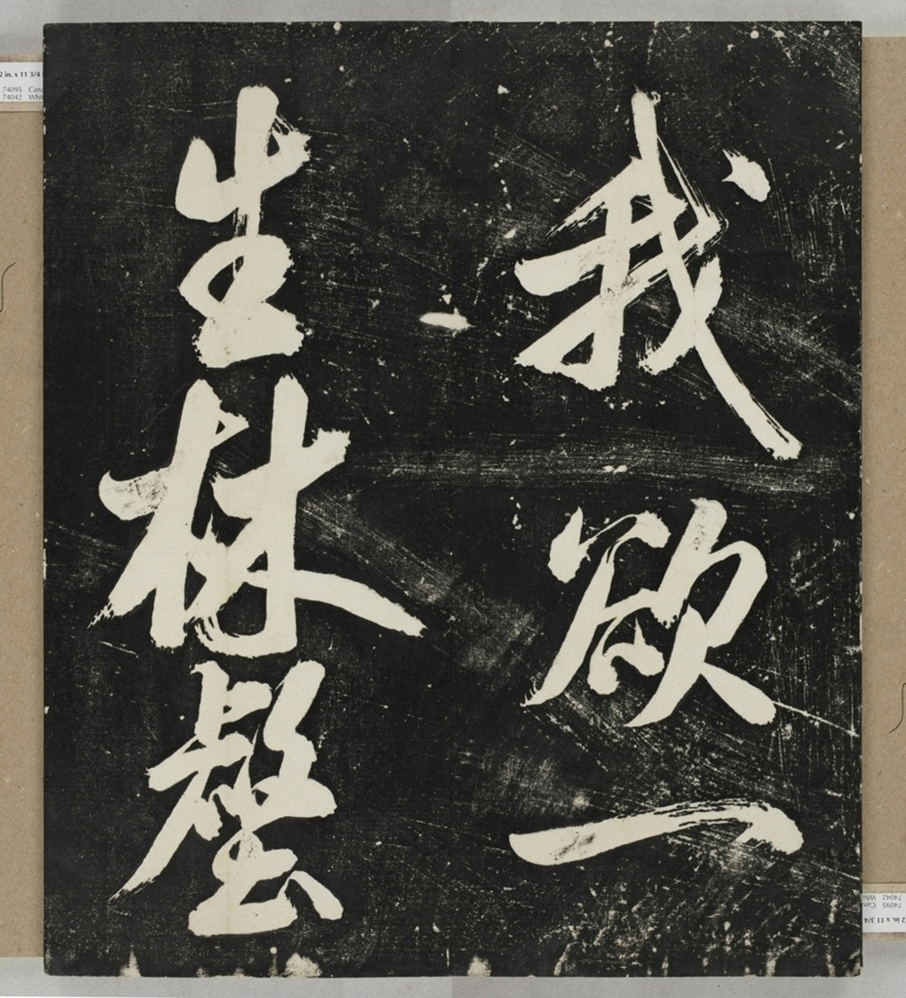 我欲一
生林壑
2 in. x 11 3/4
74095 Cana
74042 Whi
2 in. x 11 3/4
74095 Can
74042 Whi